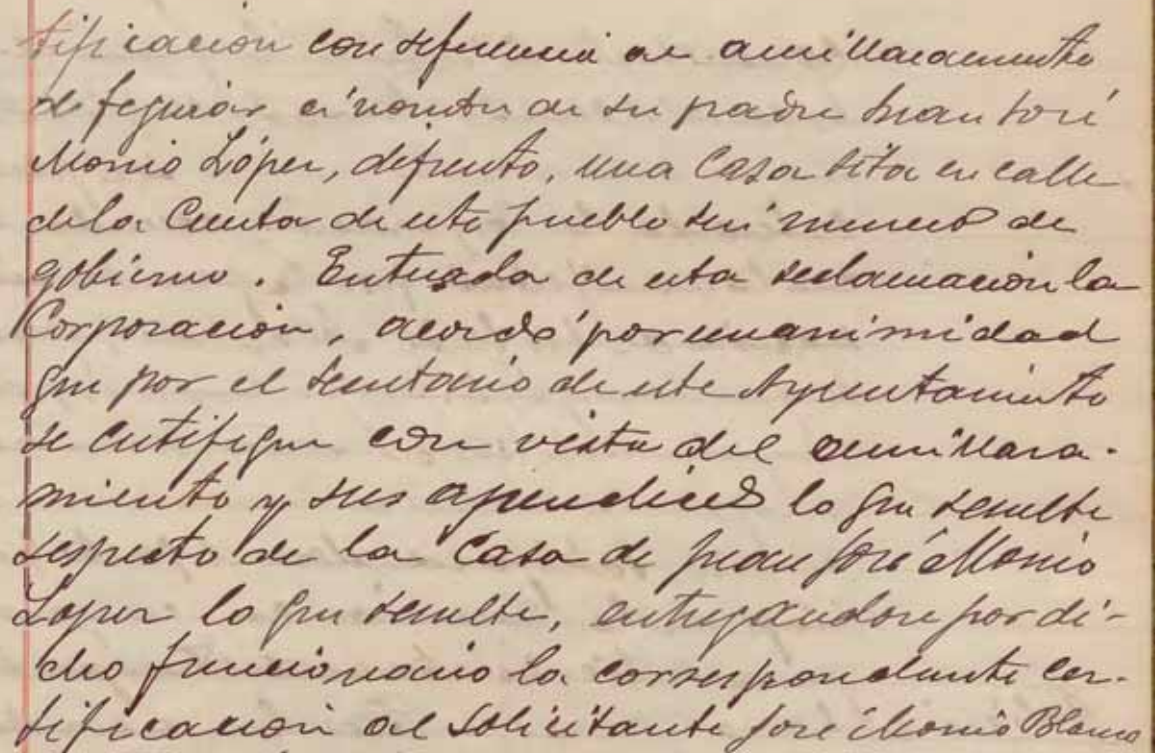 tificacion con referencia al amillaramiento
de figurar á nombre de su padre Juan José
Monio López, difunto, una Casa sita en calle
de la Cuesta de este pueblo sin numero de
gobierno. Enterada de esta reclamacion la
Corporación, acordó por unanimidad
que por el secretario de este Ayuntamiento
se certifique con vista del amillara-
miento y sus apendices lo que resulte
respecto de la Casa de Juan José Monio
Lopez lo que resulte, entregandose por di-
cho funcionario la correspondiente cer-
tificacion al solicitante José Monio Blanco